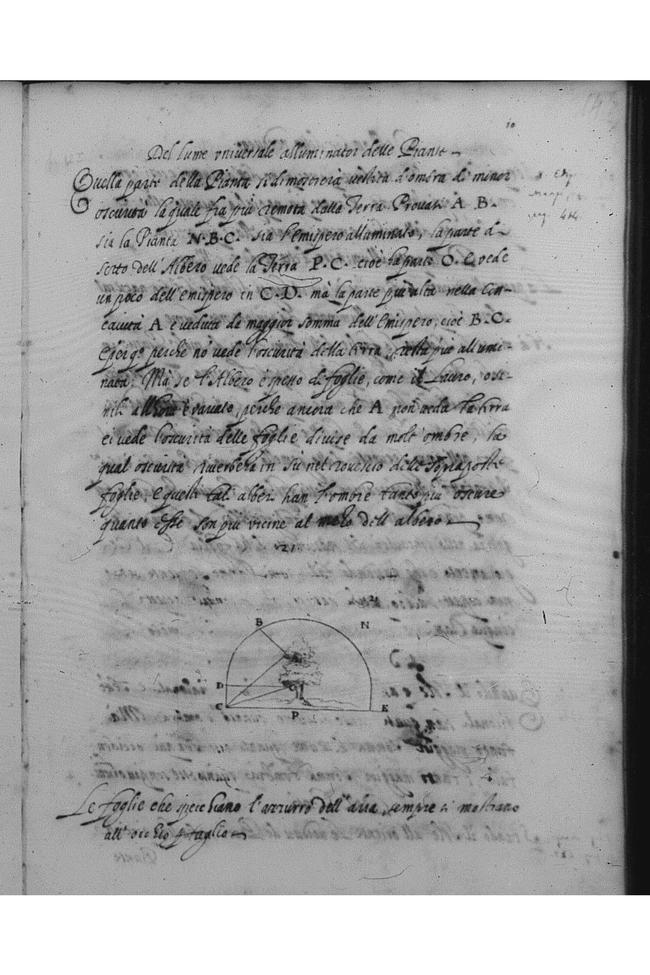 Del lume vniuersale alluminator delle Piante
Quella parte della Pianta si dimosterrà uestita d'ombra di minor
oscurità la quale fia più remota dalla Terra. Prouasi. A. B.
sia la Pianta N. B. C. sia l'emispero alluminato, la parte di
sotto dell'Albero uede la Terra P. C. cioè la parte O. e uede
un poco dell'emispero in C. D. mà la parte più alta nella con-
cauità A è ueduta da maggior somma dell'Emispero, cioè B. C.
e perche nò uede l'oscurità della terra, resta più allumi-
nata: Mà se l'Albero è spesso di foglie, come il Lauro,
perche ancora che A non ueda la terra
ei uede l'oscurità delle foglie diuise da molt'ombre, la
qual oscurità riuerbera in sù nel rouescio delle sopraposte
foglie, e questi tali alberi han l'ombre tanto più oscure
quanto esse son più uicine al mezo dell'albero
B N
A
D O
C P E
Le foglie che specchiano l'azzurro dell'aria, sempre si mostrano
all'occhio p taglio